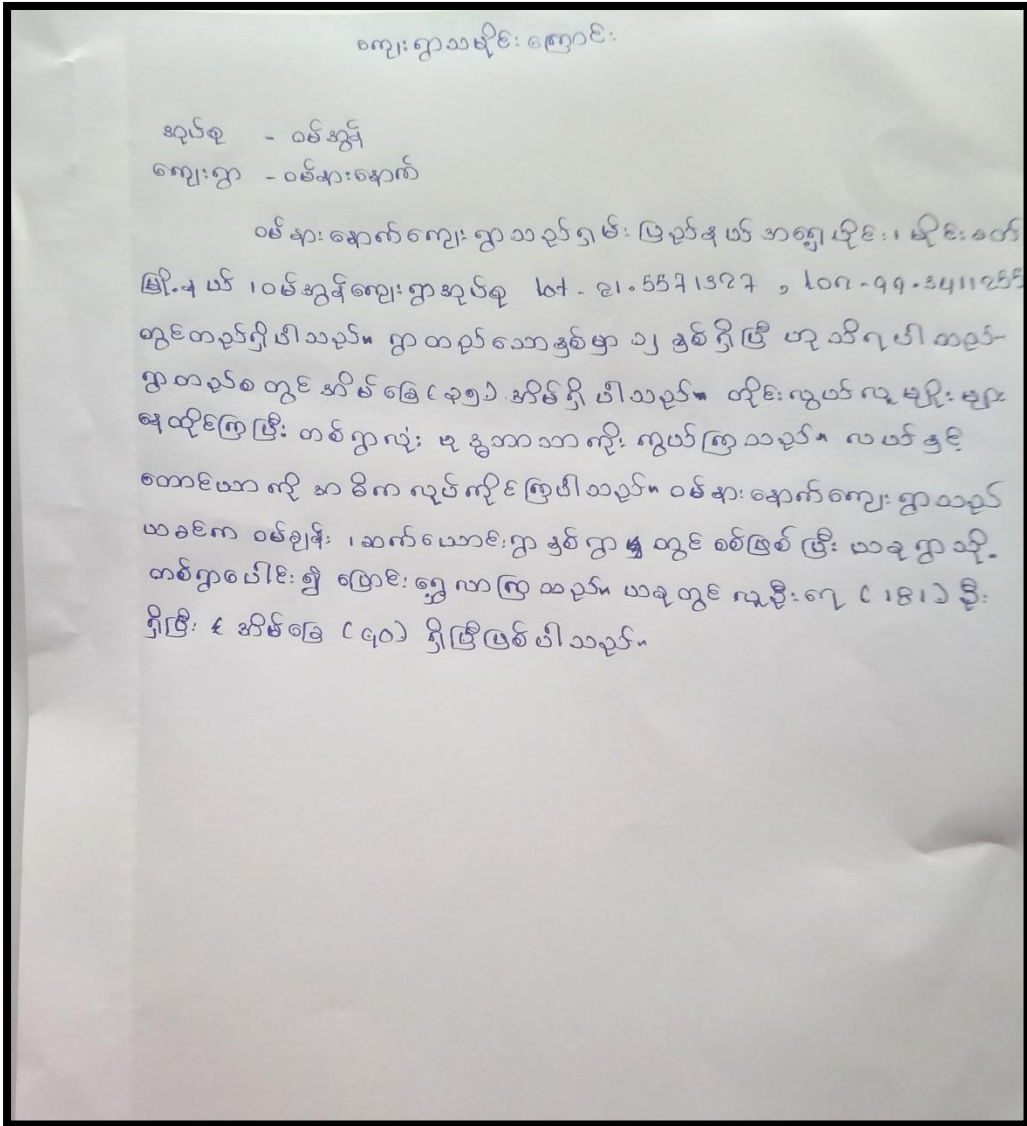 ကျေးရွာသမိုင်းကြောင်း
အုပ်စု - ဝမ်အွန်
ကျေးရွာ - ဝမ်နားနောက်
ဝမ်နားနောက်ကျေးရွာသည်ရှမ်းပြည်နယ်အရှေ့ပိုင်း၊ မိုင်းခတ်
မြို့နယ် ၊ဝမ်အွန်ကျေးရွာအုပ်စု lat - 21.5571327 , lon - 99.3411255
တွင်တည်ရှိပါသည်။ ရွာတည်သောနှစ်မှာ ၁၂ နှစ်ရှိပြီ ဟုသိရပါသည်။
ရွာတည်စတွင်အိမ်ခြေ(၃၅) အိမ်ရှိပါသည်။ တိုင်းလွယ်လူမျိုးများ
နေထိုင်ကြပြီး တစ်ရွာလုံး ဗုဒ္ဓဘာသာကိုးကွယ်ကြသည်။ လယ်နှင့်
တောင်ယာကို အဓိကလုပ်ကိုင်ကြပါသည်။ ဝမ်နားနောက်ကျေးရွာသည်
ယခင်က ဝမ်ချွန်း ၊ဆက်ယောင်းရွာ နှစ်ရွာ တွင် စစ်ဖြစ်ပြီး ယခုရွာသို့
တစ်ရွာပေါင်း၍ ပြောင်းရွှေ့လာကြသည်။ ယခုတွင် လူဦးရေ (181) ဦး
ရှိပြီး အိမ်ခြေ (၄၀) ရှိပြီဖြစ်ပါသည်။